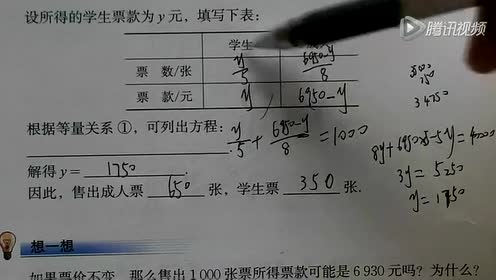 腾讯视频
设所得的学生票款为 y 元，填写下表：
学生
票 数/张 y/5 6950-y/8
票 款/元 y 6950-y
34750
根据等量关系 ①，可列出方程：y/5 + 6950-y/8 = 1000
8y+
-5y=40000
3y=5250
y=1750
解得 y = 1750
因此，售出成人票 650 张，学生票 350 张.
想一想
如果票价不变，那么售出 1 000 张票所得票款可能是 6 930 元吗？为什么？